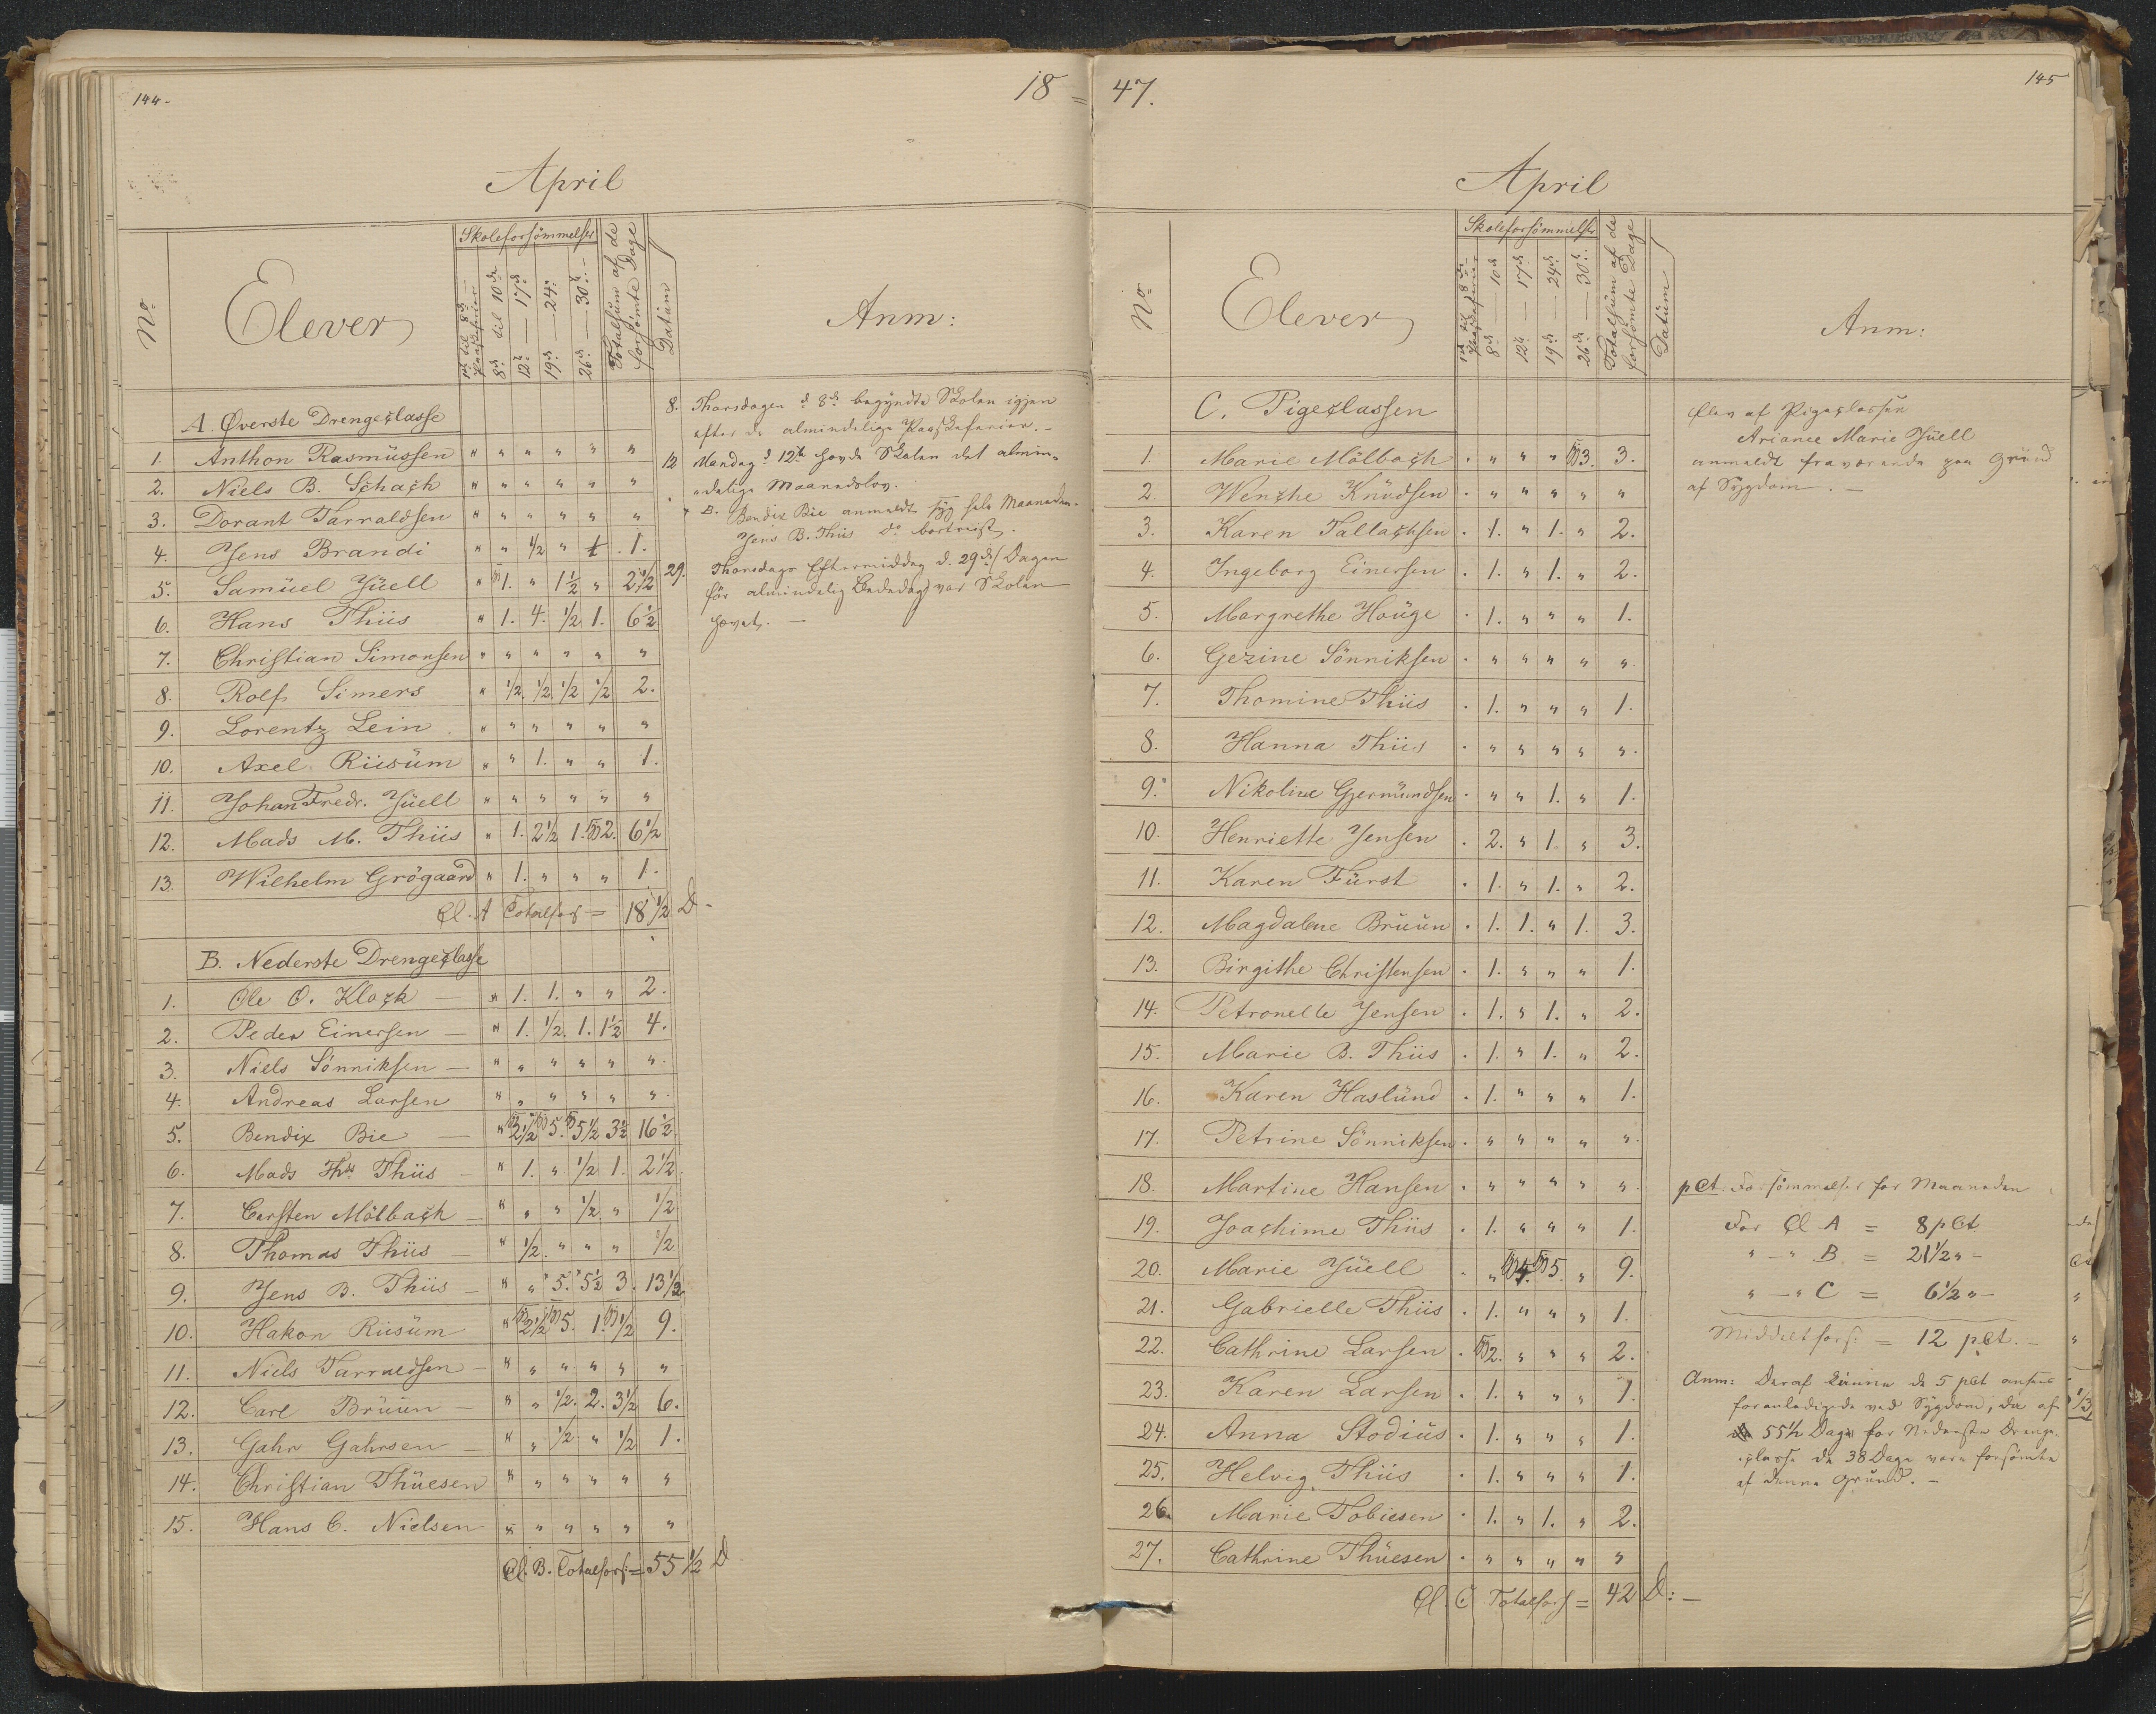 144.
18 =
April
No
Elever
Skoleforsömmelser
1st til 8de
Paaskeferier
8de til 10de
12te — 17de
19de — 24de
26de — 30te
Totalsum af de
forsömte Dage
Datum
Anm:
A. Øverste Drengeclasse
1. Anthon Rasmüssen " " " " " "
2. Niels B. Schach " " " " " "
3. Dorant Tarraldsen " " " " " "
4. Jens Brandi " " 1/2 " 1/2 1.
5. Samüel Jüell " 1. " 1 1/2 " 2 1/2
6. Hans Thiis " 1. 4. 1/2 1. 6 1/2
7. Christian Simonsen " " " " " "
8. Rolf Simers " 1/2 1/2 1/2 1/2 2.
9. Lorentz Lein " " " " " "
10. Axel Riisüm " " 1. " " 1.
11. Johan Fredr. Jüell " " " " " "
12. Mads M. Thiis " 1. 2 1/2 1. 2. 6 1/2
13. Wilhelm Grögaard " 1. " " " 1.
Cl. A Totalfors = 18 1/2 D.
B. Nederste Drengeclasse
1. Ole O. Klock " 1. 1. " " 2.
2. Peder Einersen " 1. 1/2. 1. 1 1/2 4.
3. Niels Sönniksen " " " " " "
4. Andreas Larsen " " " " " "
5. Bendix Bie " 2 1/2 5. 5 1/2 3 1/2 16 1/2
6. Mads Ths Thiis " 1. " 1/2 1. 2 1/2
7. Carsten Mölbach " " " 1/2 " 1/2
8. Thomas Thiis " 1/2 " " " 1/2
9. Jens B. Thiis " " 5. 5 1/2 3. 13 1/2
10. Hakon Riisüm " 2 1/2 5. 1. 1/2 9.
11. Niels Tarraldsen " " " " " "
12. Carl Brüün " " 1/2. 2. 3 1/2 6.
13. Gahr Gahrsen " " 1/2 " 1/2 1.
14. Christian Thüesen " " " " " "
15. Hans C. Nielsen " " " " " "
Cl. B. Totalfors: = 55 1/2 D
8. Thorsdagen d 8de begyndte Skolen igjen
efter de almindelige Paaskeferier. –
12 Mandag d 12te havde Skolen det almin-
delige Maanedslov.
" B. Bendix Bie anmeldt syg hele Maaneden.
Jens B. Thiis Do bortreist.
29. Thorsdags Eftermiddag d. 29de (Dagen
för almindelig Bededag) var Skolen
hævet. –
47.
145
April
No
Elever
Skoleforsömmelser
1st til 8de
Paaskeferier
8de — 10de
12te — 17de
19de — 24de
26de — 30te
Totalsüm af de
forsömte Dage
Datüm
Anm:
C. Pigeclassen
1. Marie Mölbach . " " " 3. 3.
2. Wenche Knüdsen . " " " " "
3. Karen Tallachsen . 1. " 1. " 2.
4. Ingeborg Einersen . 1. " 1. " 2.
5. Margrethe Houge . 1. " " " 1.
6. Gezine Sönniksen . " " " " "
7. Thomine Thiis . 1. " " " 1.
8. Hanna Thiis . " " " " ".
9. Nikoline Gjermündsen . " " 1. " 1.
10. Henriette Jensen . 2. " 1. " 3.
11. Karen Fürst . 1. " 1. " 2.
12. Magdalene Brüün . 1. 1. " 1. 3.
13. Birgithe Christensen . 1. " " " 1.
14. Petronelle Jensen . 1. " 1. " 2.
15. Marie B. Thiis . 1. " 1. " 2.
16. Karen Haslünd . 1. " " " 1.
17. Petrine Sönniksen . " " " " ".
18. Martine Hansen . " " " " ".
19. Joachime Thiis . 1. " " " 1.
20. Marie Jüell . " 4. 5. " 9.
21. Gabrielle Thiis . 1. " " " 1.
22. Cathrine Larsen . 2. " " " 2.
23. Karen Larsen . 1. " " " 1.
24. Anna Stodiüs . 1. " " " 1.
25. Helvig Thiis . 1. " " " 1.
26. Marie Tobiesen . 1. " 1. " 2.
27. Cathrine Thüesen . " " " " "
Cl. C Totalfors = 42 D: –
Elev af Pigeclassen
Ariance Marie Jüell
anmeldt fraværende paa Grund
af Sygdom. –
pCt. Forsömmelser for Maaneden
For Cl A = 8 pCt
" – " B = 21 1/2 " –
" – " C = 6 1/2 " –
Middelfors: = 12 pCt. –
Anm: Deraf kunne de 5 pCt ansees
foranledigede ved Sygdom, da af
55 1/2 Dage for Nederste Drenge-
classe de 38 Dage vare forsömte
af denne Grund. –